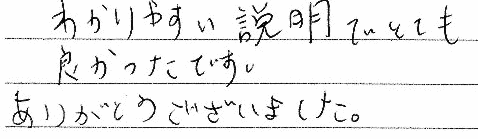 わかりやすい説明でとても
良かったです。
ありがとうございました。